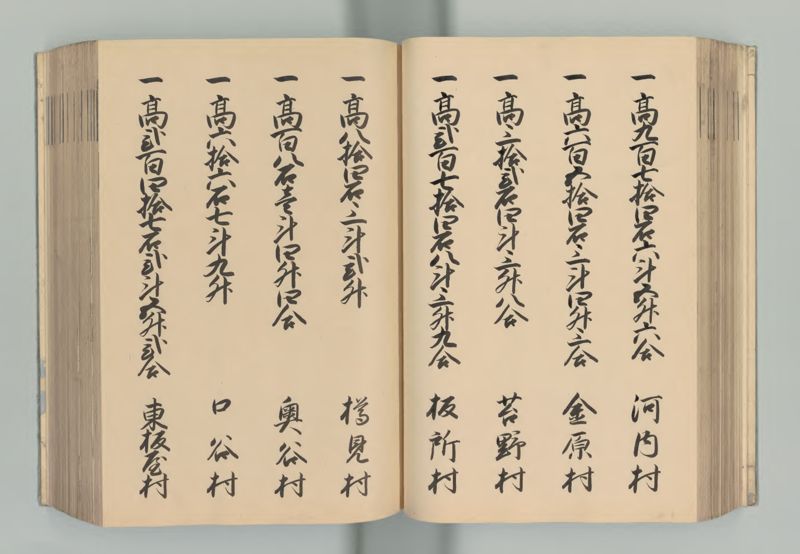 一高九百七拾四石六斗五升六合 河内村
一高六百五拾四石三斗四升三合 金原村
一高三拾弐石四斗三升八合 苔野村
一高弐百七拾四石八斗三升九合 板所村
一高八拾四石三斗弐升 樽見村
一高百八石壱斗四升四合 奥谷村
一高六拾六石七斗九升 口谷村
一高弐百四拾七石弐斗五升弐合 東板屋村